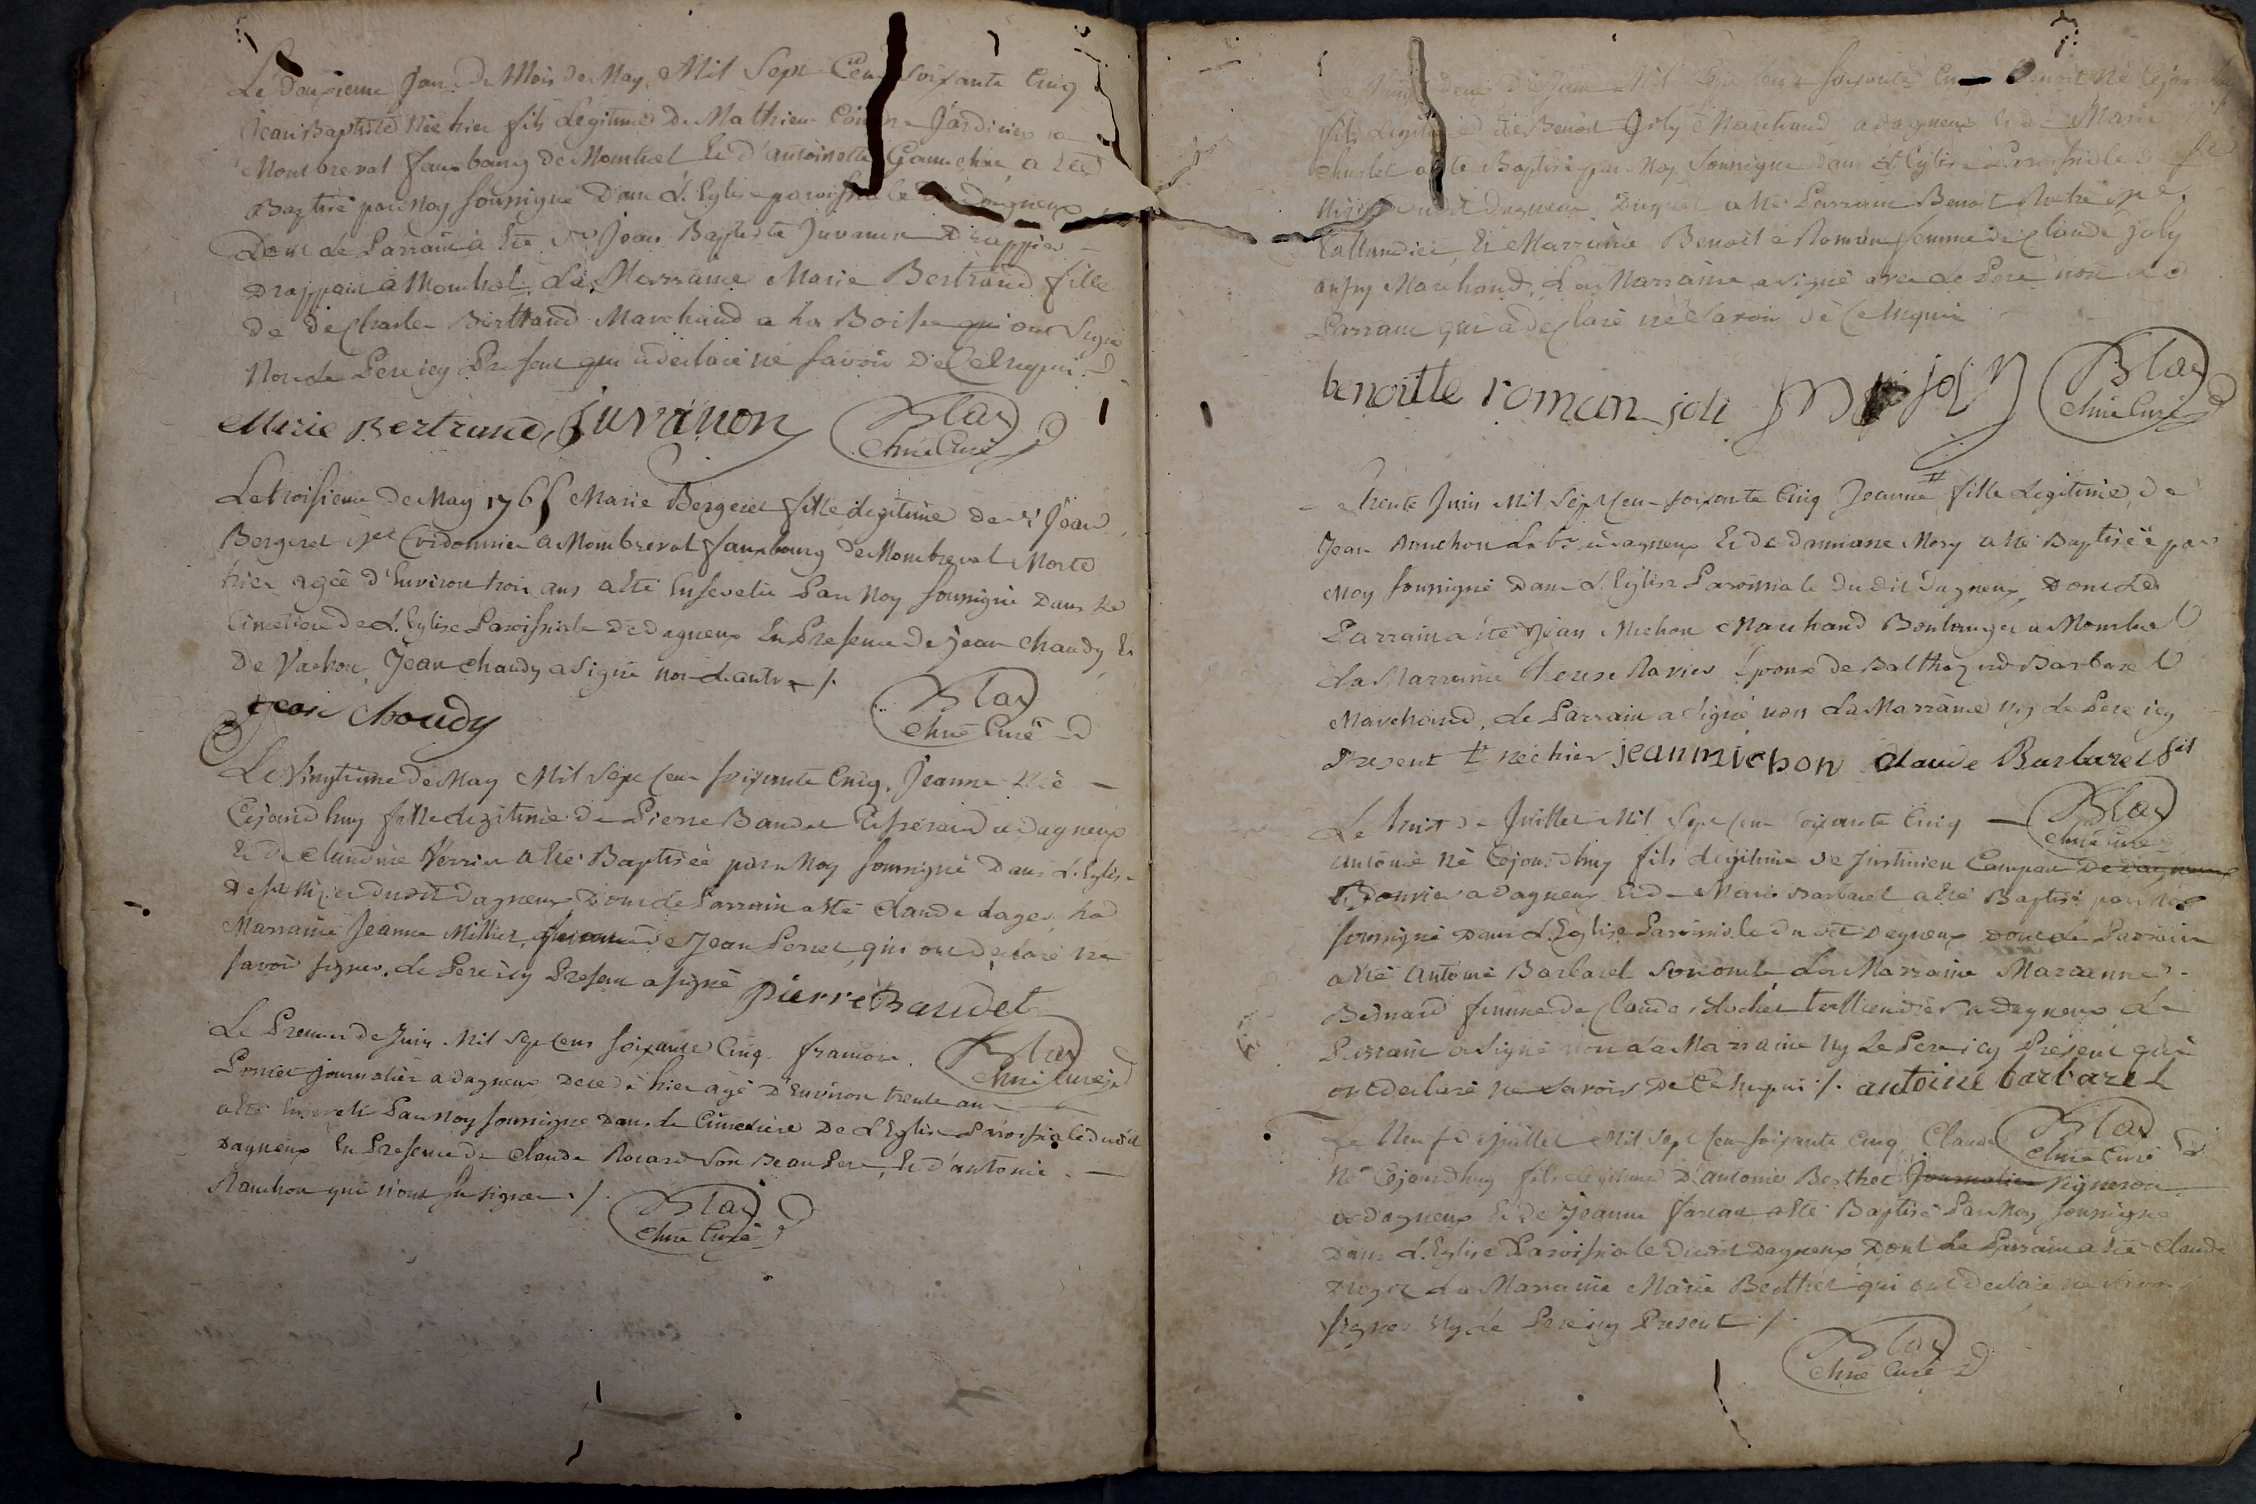 Le deuxieme Jour Du Mois de May Mil Sept Cent soixante Cinq
Jean Baptiste Née hier fils Legitime De Mathieu Jardinier a
Montbreval fauxbourg de Montluel Et d'antoinette a Eté
Baptisé par Moy soussigné Dans L'Eglise paroissiale De Dagneux
Dont Le Parrain à Eté Sr Jean Baptiste Juvanon Drappier
Drappier a Montluel, La Marraine Marie Bertrand fille
De De Charles Bertrand Marchand a La Boisse qui ont Signé
Non Le Pere icy Present qui a declaré ne savoir De Ce Enquis
Marie Bertrand Juvanon Blay
Chne Curé
Le troisieme De May 1765 Marie Bergeret fille Legitime de Sr Jean
Bergeret Cordonnier a Montbreval fauxbourg De Montbreval Morte
hier agée d'Environ trois ans a Eté Ensevelie Par Moy soussigné Dans Le
Cimetiere De L'Eglise Paroissiale De dagneux En Presence De Jean Chaudy Et
De Vachon, Jean chaudy a signé non L'autre /.
jean choudy Blay
Chne Curé
Le Vingtieme De May Mil Sept Cent soixante Cinq, Jeanne Née
Cejourd'huy fille Legitime De Pierre Baudet a Dagneux
Et De Claudine Verrier a Eté Baptisée par Moy soussigné Dans L'Eglise
dudit Dagneux Dont Le Parrain a Eté Claude La
Marraine Jeanne Millier, femme De Jean Perret, qui ont Declaré ne
savoir signer, Le Pere icy Present a signé Pierre Baudet
Le Premier De Juin Mil Sept Cens soixante Cinq. francois Blay
Chne Curé
journalier a Dagneux Decedé hier agé D'Environ trente ans
a Eté Enseveli Par Moy soussigné Dans Le Cimetiere De L'Eglise Paroissiale dudit
Dagneux En Presence De Claude Son Beau Pere, Et d'antoine
qui n'ont Su signer /.
Blay
Chne Curé
De Juin Mil Sept Cent soixante Cinq Benoit Né Cejourdhuy
fils Legitime De Benoit Joly Marchand a dagneux Et De Marie
a Eté Baptisé par Moy Soussigné Dans L'Eglise Paroissiale
Dagneux, Duquel a Eté Parrain Benoit
Et Marraine Benoite Roman femme de Claude Joly
aussy Marchand. La Marraine a signé avec Le Pere non Le
Parrain qui a declaré ne Savoir De Ce Enquis
benoitte roman joli joly Blay
Chne Curé
Le trente Juin Mil Sept Cent soixante Cinq Jeanne # fille Legitime, De
Jean a Dagneux Et De Damiane Mory a Eté Baptisée par
Moy soussigné Dans L'Eglise Paroissiale Dudit Dagneux Dont Le
Parrain a Eté Jean Michon Marchand Boulanger a Montluel
La Marraine Epouse De Balthazard Barbaret
Marchand, Le Parrain a Signé non La Marraine ny Le Pere icy
Present # née hier jean michon claude Barbaret
Le huit De Juillet Mil Sept Cent soixante Cinq Blay
Chne Curé
antoine Né Cejourdhuy fils Legitime De Justinien
a Dagneux Et De Marie Barbaret a Eté Baptisé par Moy
soussigné Dans L'Eglise Paroissiale du dit Dagneux Dont Le Parrain
a Eté Antoine Barbaret Son oncle La Marraine Marianne
Bernard femme De Claude a Dagneux Le
Parrain a signé non La Marraine Ny Le Pere icy Present qui
ont declaré ne Savoir De Ce Enquis /. antoine barbaret
Le Neuf De Juillet Mil Sept Cent soixante Cinq Claude Blay
Chne Curé
Né Cejourdhuy fils Legitime D'antoine Berthet Journalier Vigneron
a Dagneux Et De Jeanne a Eté Baptisé Par Moy Soussigné
Dans L'Eglise Paroissiale Dudit Dagneux, Dont Le Parrain a Eté Claude
La Marraine Marie Berthet qui ont declaré ne savoir
signer Ny Le Pere icy Present /.
Blay
Chne Curé